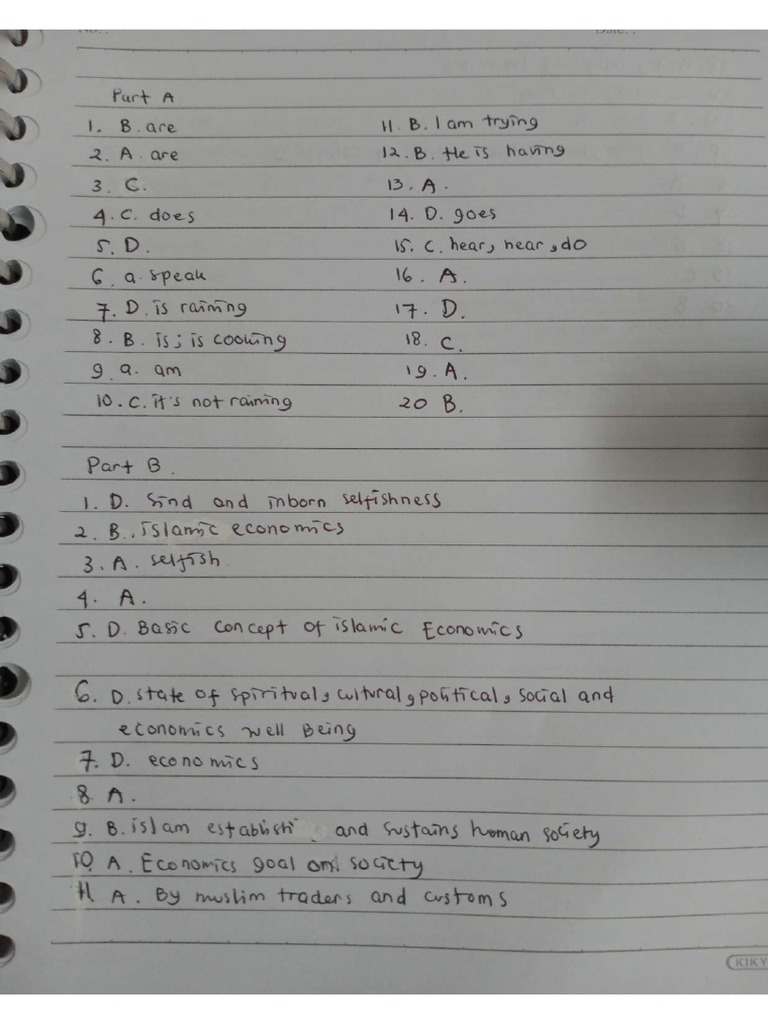 Part A
1. B. are
2. A. are
3. C.
4. C. does
5. D.
6. a. speak
7. D. is raining
8. B. is; is cooking
9. a. am
10. C. it's not raining
11. B. I am trying
12. B. He is having
13. A.
14. D. goes
15. C. hear, hear, do
16. A.
17. D.
18. C.
19. A.
20 B.
Part B.
1. D. Sind and inborn selfishness
2. B. islamic economics
3. A. selfish
4. A.
5. D. Basic concept of islamic Economics
6. D. state of spiritual, cultural, political, social and
economics well Being
7. D. economics
8. A.
9. B. islam establishi and sustains human society
10. A. Economics goal and society
11. A. By muslim traders and customs
KIKY